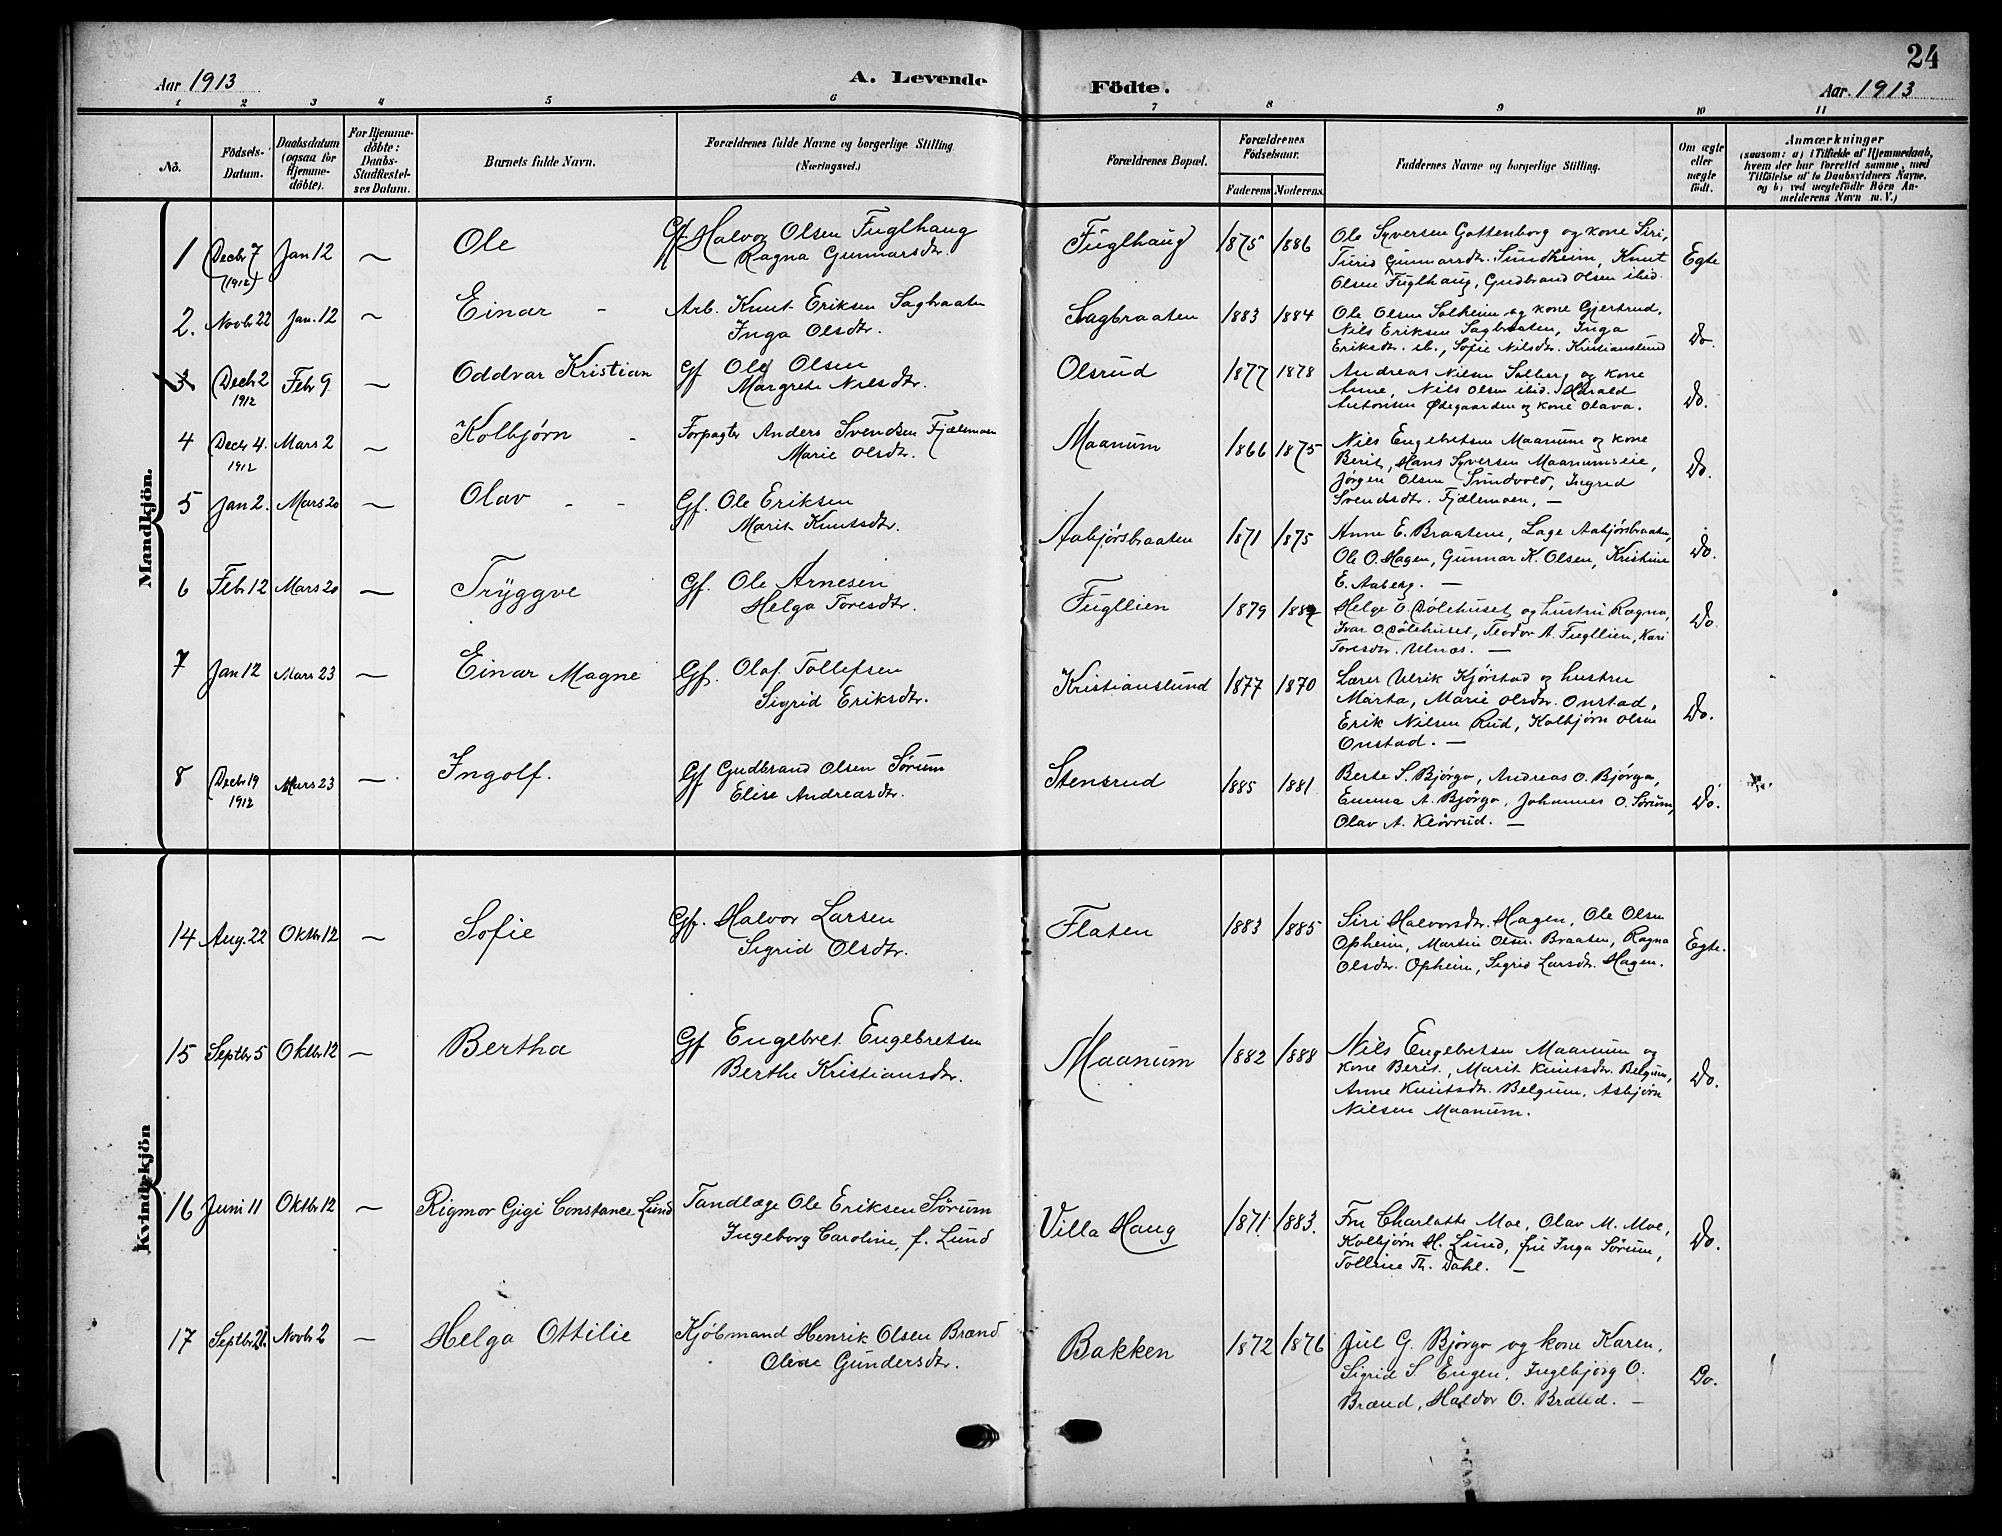 24
Aar 1913
A. Levende
Födte.
Aar. 1913
1 2 3 4 5 6 7 8 9 10 11
No.
Födsels-Datum.
Daabsdatum (ogsaa for Hjemmedöbte).
For Hjemmedöbte: Daabs-Stadfæstelses Datum.
Barnets fulde Navn.
Forældrenes fulde Navne og borgerlige Stilling (Næringsvei.)
Forældrenes Bopæl.
Forældrenes Födselsaar.
Faderens. Moderens.
Faddernes Navne og borgerlige Stilling.
Om ægte eller uægte födt.
Anmærkninger
(saasom: a) i Tilfælde af Hjemmedaab,
hvem der har forrettet samme, med
Tilföielse af to Daabsvidners Navne,
og b) ved uægtefödte Börn An-
melderens Navn m. V.)
Mandkjön.
1 Decbr 7 (1912) Jan 12 — Ole
Gf Halvor Olsen Fuglhaug
Ragna Gunnarsdtr.
Fuglhaug 1875 1886
Ole Syversen Gottenborg og kone Siri,
Turid Gunnarsdtr. Sundheim, Knut
Olsen Fuglhaug, Gudbrand Olsen ibid.
Egte
2. Novbr 22 Jan. 12 — Einar -
Arb. Knut Eriksen Sagbraaten
Inga Olsdtr.
Sagbraaten 1883 1884
Ole Olsen Solheim og kone Gjertrud,
Nils Eriksen Sagbraaten, Inga
Eriksdtr. ib., Sofie Nilsdtr. Kristianslund
Do.
3 Decbr 2 1912 Febr 9 — Oddvar Kristian
Gf Ole Olsen
Margrete Nilsdtr.
Olsrud 1877 1878
Andreas Nilsen Solberg og kone
Anne, Nils Olsen ibid. Harald
Antonsen Ødegaarden og kone Olava.
Do.
4 Decbr 4. 1912 Mars 2 — Kolbjørn -
Forpagter Anders Svendsen Fjælemoen
Marie Olsdtr.
Maanum 1866 1875
Nils Engebretsen Maanum og kone
Berit, Hans Syversen Maanumseie,
Jørgen Olsen Sundvold, Ingrid
Svendsdtr. Fjælemoen, —
Do.
5 Jan 2. Mars 20 — Olav - -
Gf. Ole Eriksen
Marit Knutsdtr.
Aabjørsbraaten 1871 1875
Anne E. Braatene, Lage Aabjørsbraaten,
Ole O. Hagen, Gunnar K. Olsen, Kristine
E. Aaberg. —
Do.
6 Febr 12 Mars 20 — Tryggve
Gf. Ole Arnesen
Helga Toresdtr.
Fugllien 1879
Helge O. Dölehuset og hustru Ragna,
Ivar O. Dölehuset, Teodor A. Fugllien, Kari
Toresdtr. Ulnæs. —
Do.
7 Jan 12 Mars 23 — Einar Magne
Gf. Olaf Tollefsen
Sigrid Eriksdtr.
Kristianslund 1877 1870
Lærer Ulrik Kjørstad og hustru
Marta, Marie Olsdtr. Onstad,
Erik Nilsen Rud, Kolbjørn Olsen
Onstad. —
Do.
8 Decbr 19 1912 Mars 23 — Ingolf.
Gf Gudbrand Olsen Sørum
Elise Andreasdtr.
Stensrud 1885 1881
Berte S. Bjørgo, Andreas O. Bjørgo,
Emma A. Bjørgo, Johannes O. Sørum,
Olav A. Kløvrud. —
Do.
Kvindekjön
14 Aug. 22 Oktbr 12 — Sofie
Gf. Halvor Larsen
Sigrid Olsdtr.
Flaten 1883 1885
Siri Halvorsdtr. Hagen, Ole Olsen
Opheim, Martin Olsen Braaten, Ragna
Olsdtr. Opheim, Sigrid Larsdtr. Hagen.
Egte.
15 Septbr 5 Oktbr 12 — Bertha
Gf Engebret Engebretsen
Berthe Kristiansdtr.
Maanum 1882 1888
Nils Engebretsen Maanum og
kone Berit, Marit Knutsdtr. Belgum,
Anne Knutsdtr. Belgum, Asbjørn
Nilsen Maanum.
Do.
16 Juni 11 Oktbr 12 — Rigmor Gigi Constance Lund
Tandlæge Ole Eriksen Sörum
Ingeborg Caroline, f. Lund
Villa Haug 1871. 1883.
Fru Charlotte Moe, Olav M. Moe,
Kolbjørn H. Lund, fru Inga Sørum,
Tolline Th. Dahl. —
Do.
17 Septbr Novbr 2 — Helga Ottilie
Kjøbmand Henrik Olsen Brænd
Oline Gundersdtr.
Bakken 1872 1876
Juel G. Bjørgo og kone Karen,
Sigrid S. Engen, Ingebjørg O.
Brænd, Haldor O. Brænd. —
Do.